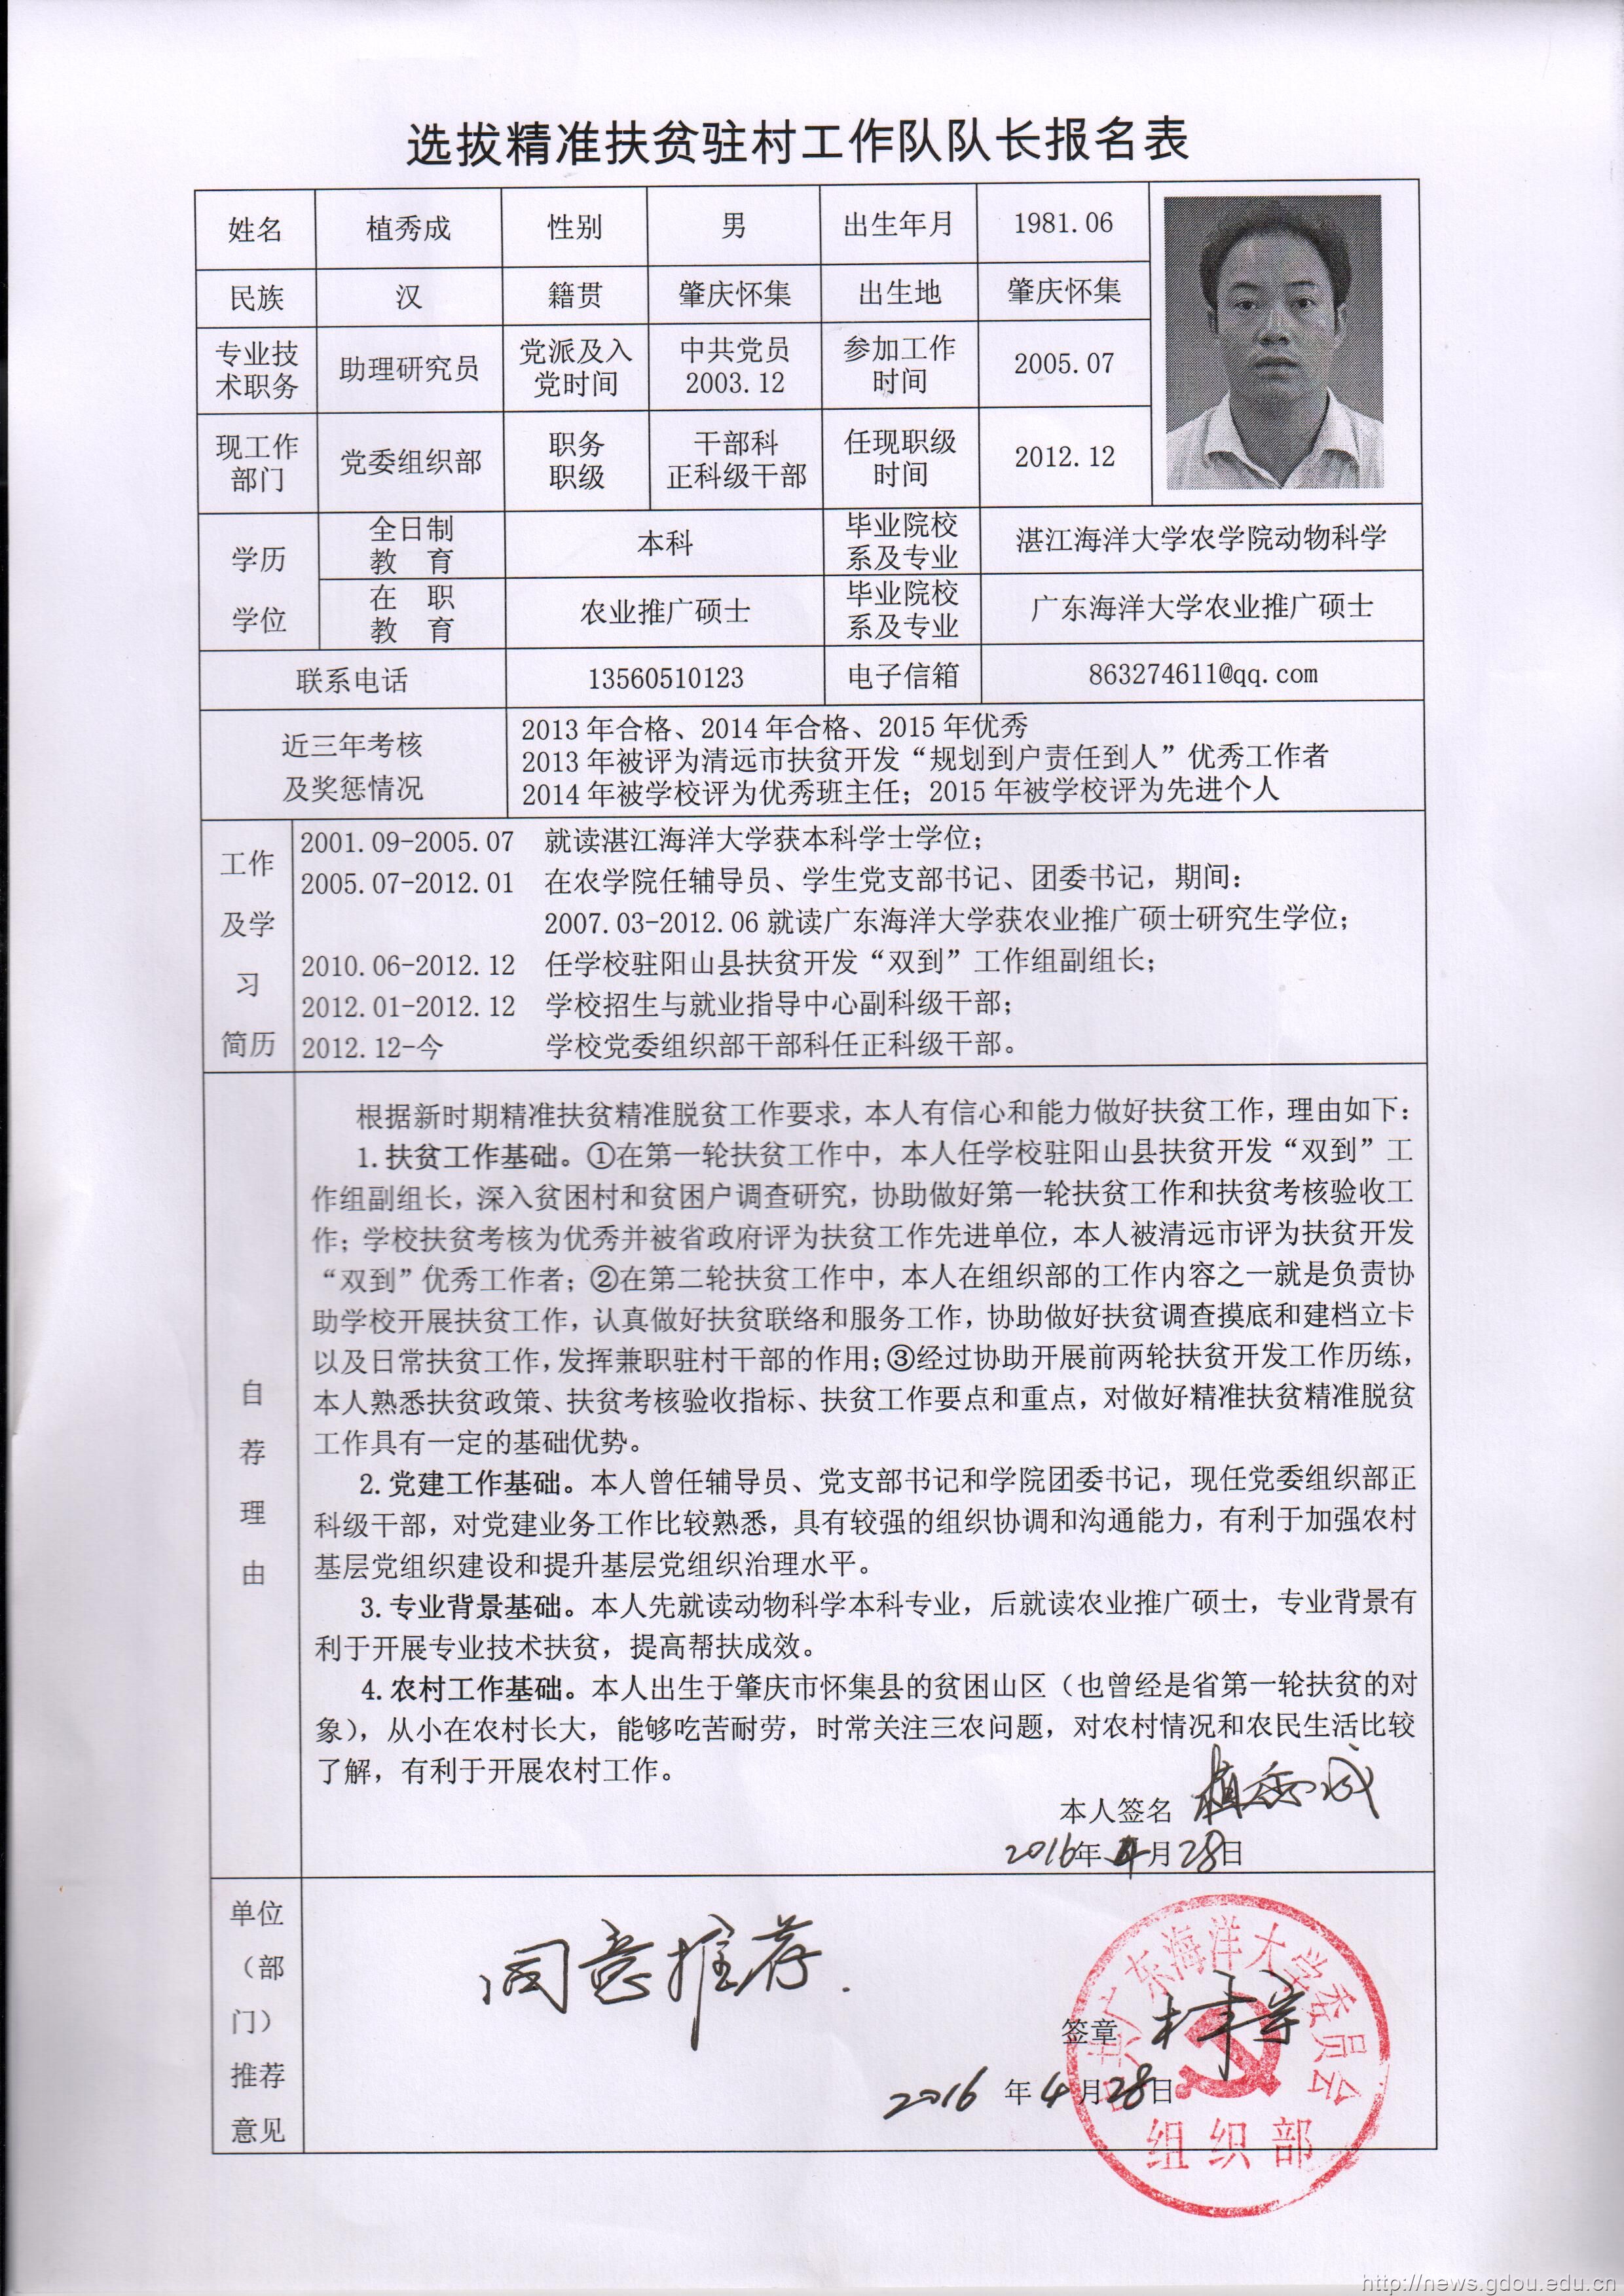 选拔精准扶贫驻村工作队队长报名表
姓名 植秀成 性别 男 出生年月 1981.06
民族 汉 籍贯 肇庆怀集 出生地 肇庆怀集
专业技术职务 助理研究员 党派及入党时间 中共党员2003.12 参加工作时间 2005.07
现工作部门 党委组织部 职务职级 干部科正科级干部 任现职级时间 2012.12
学历学位 全日制教 育 本科 毕业院校系及专业 湛江海洋大学农学院动物科学
在 职教 育 农业推广硕士 毕业院校系及专业 广东海洋大学农业推广硕士
联系电话 13560510123 电子信箱 863274611@qq.com
近三年考核及奖惩情况
2013年合格、2014年合格、2015年优秀
2013年被评为清远市扶贫开发“规划到户责任到人”优秀工作者
2014年被学校评为优秀班主任；2015年被学校评为先进个人
工作及学习简历
2001.09-2005.07 就读湛江海洋大学获本科学士学位；
2005.07-2012.01 在农学院任辅导员、学生党支部书记、团委书记，期间：
2007.03-2012.06就读广东海洋大学获农业推广硕士研究生学位；
2010.06-2012.12 任学校驻阳山县扶贫开发“双到”工作组副组长；
2012.01-2012.12 学校招生与就业指导中心副科级干部；
2012.12-今 学校党委组织部干部科任正科级干部。
自荐理由
根据新时期精准扶贫精准脱贫工作要求，本人有信心和能力做好扶贫工作，理由如下：
1.扶贫工作基础。①在第一轮扶贫工作中，本人任学校驻阳山县扶贫开发“双到”工
作组副组长，深入贫困村和贫困户调查研究，协助做好第一轮扶贫工作和扶贫考核验收工
作；学校扶贫考核为优秀并被省政府评为扶贫工作先进单位，本人被清远市评为扶贫开发
“双到”优秀工作者；②在第二轮扶贫工作中，本人在组织部的工作内容之一就是负责协
助学校开展扶贫工作，认真做好扶贫联络和服务工作，协助做好扶贫调查摸底和建档立卡
以及日常扶贫工作，发挥兼职驻村干部的作用；③经过协助开展前两轮扶贫开发工作历练，
本人熟悉扶贫政策、扶贫考核验收指标、扶贫工作要点和重点，对做好精准扶贫精准脱贫
工作具有一定的基础优势。
2.党建工作基础。本人曾任辅导员、党支部书记和学院团委书记，现任党委组织部正
科级干部，对党建业务工作比较熟悉，具有较强的组织协调和沟通能力，有利于加强农村
基层党组织建设和提升基层党组织治理水平。
3.专业背景基础。本人先就读动物科学本科专业，后就读农业推广硕士，专业背景有
利于开展专业技术扶贫，提高帮扶成效。
4.农村工作基础。本人出生于肇庆市怀集县的贫困山区（也曾经是省第一轮扶贫的对
象），从小在农村长大，能够吃苦耐劳，时常关注三农问题，对农村情况和农民生活比较
了解，有利于开展农村工作。
本人签名 植秀成
2016年4月28日
单位（部门）推荐意见
同意推荐.
签章
2016年4月28日
中共广东海洋大学委员会
组织部
http://news.gdou.edu.cn